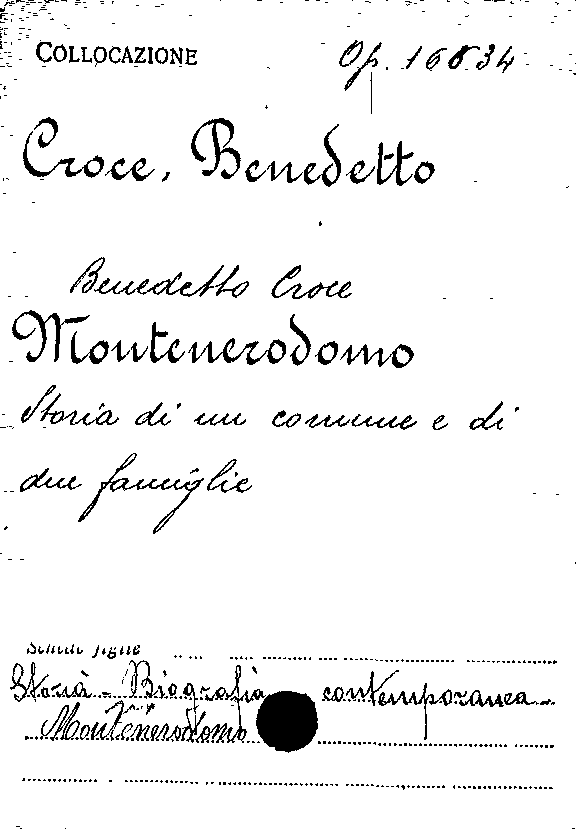 COLLOCAZIONE Op. 16634
Croce, Benedetto
Benedetto Croce
Montenerodomo
Storia di un comune e di
due famiglie
Schede figlie
Storia - Biografia contemporanea -
Montenerodomo